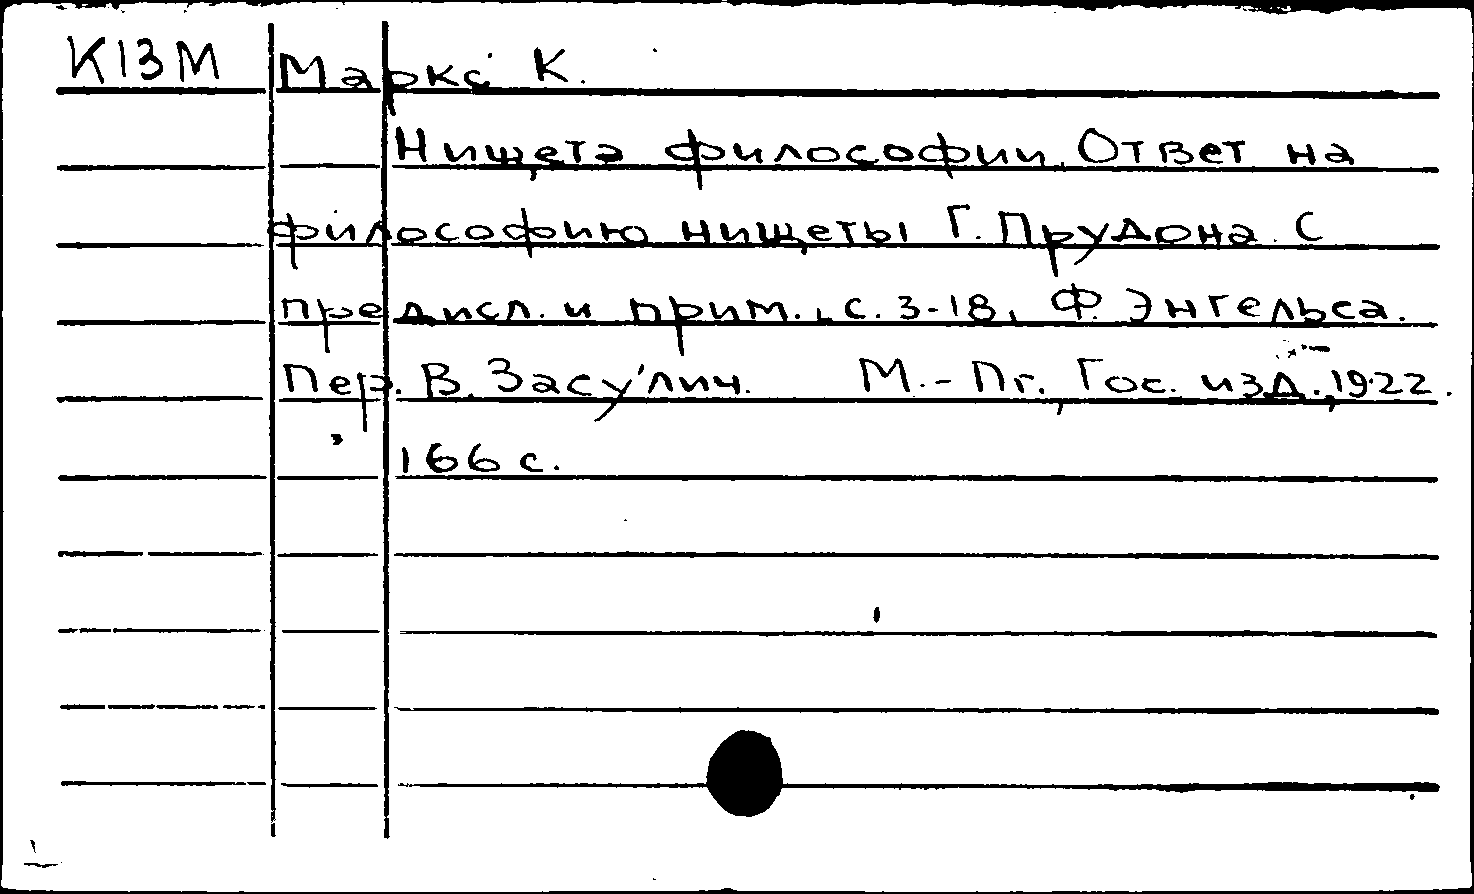 К13М Маркс К.
Нищета философии. Ответ на
философию нищеты Г. Прудона. С
предисл. и прим., с. 3-18, Ф. Энгельса.
Пер. В. Засулич. М.-Пг., Гос. изд., 1922.
166 с.